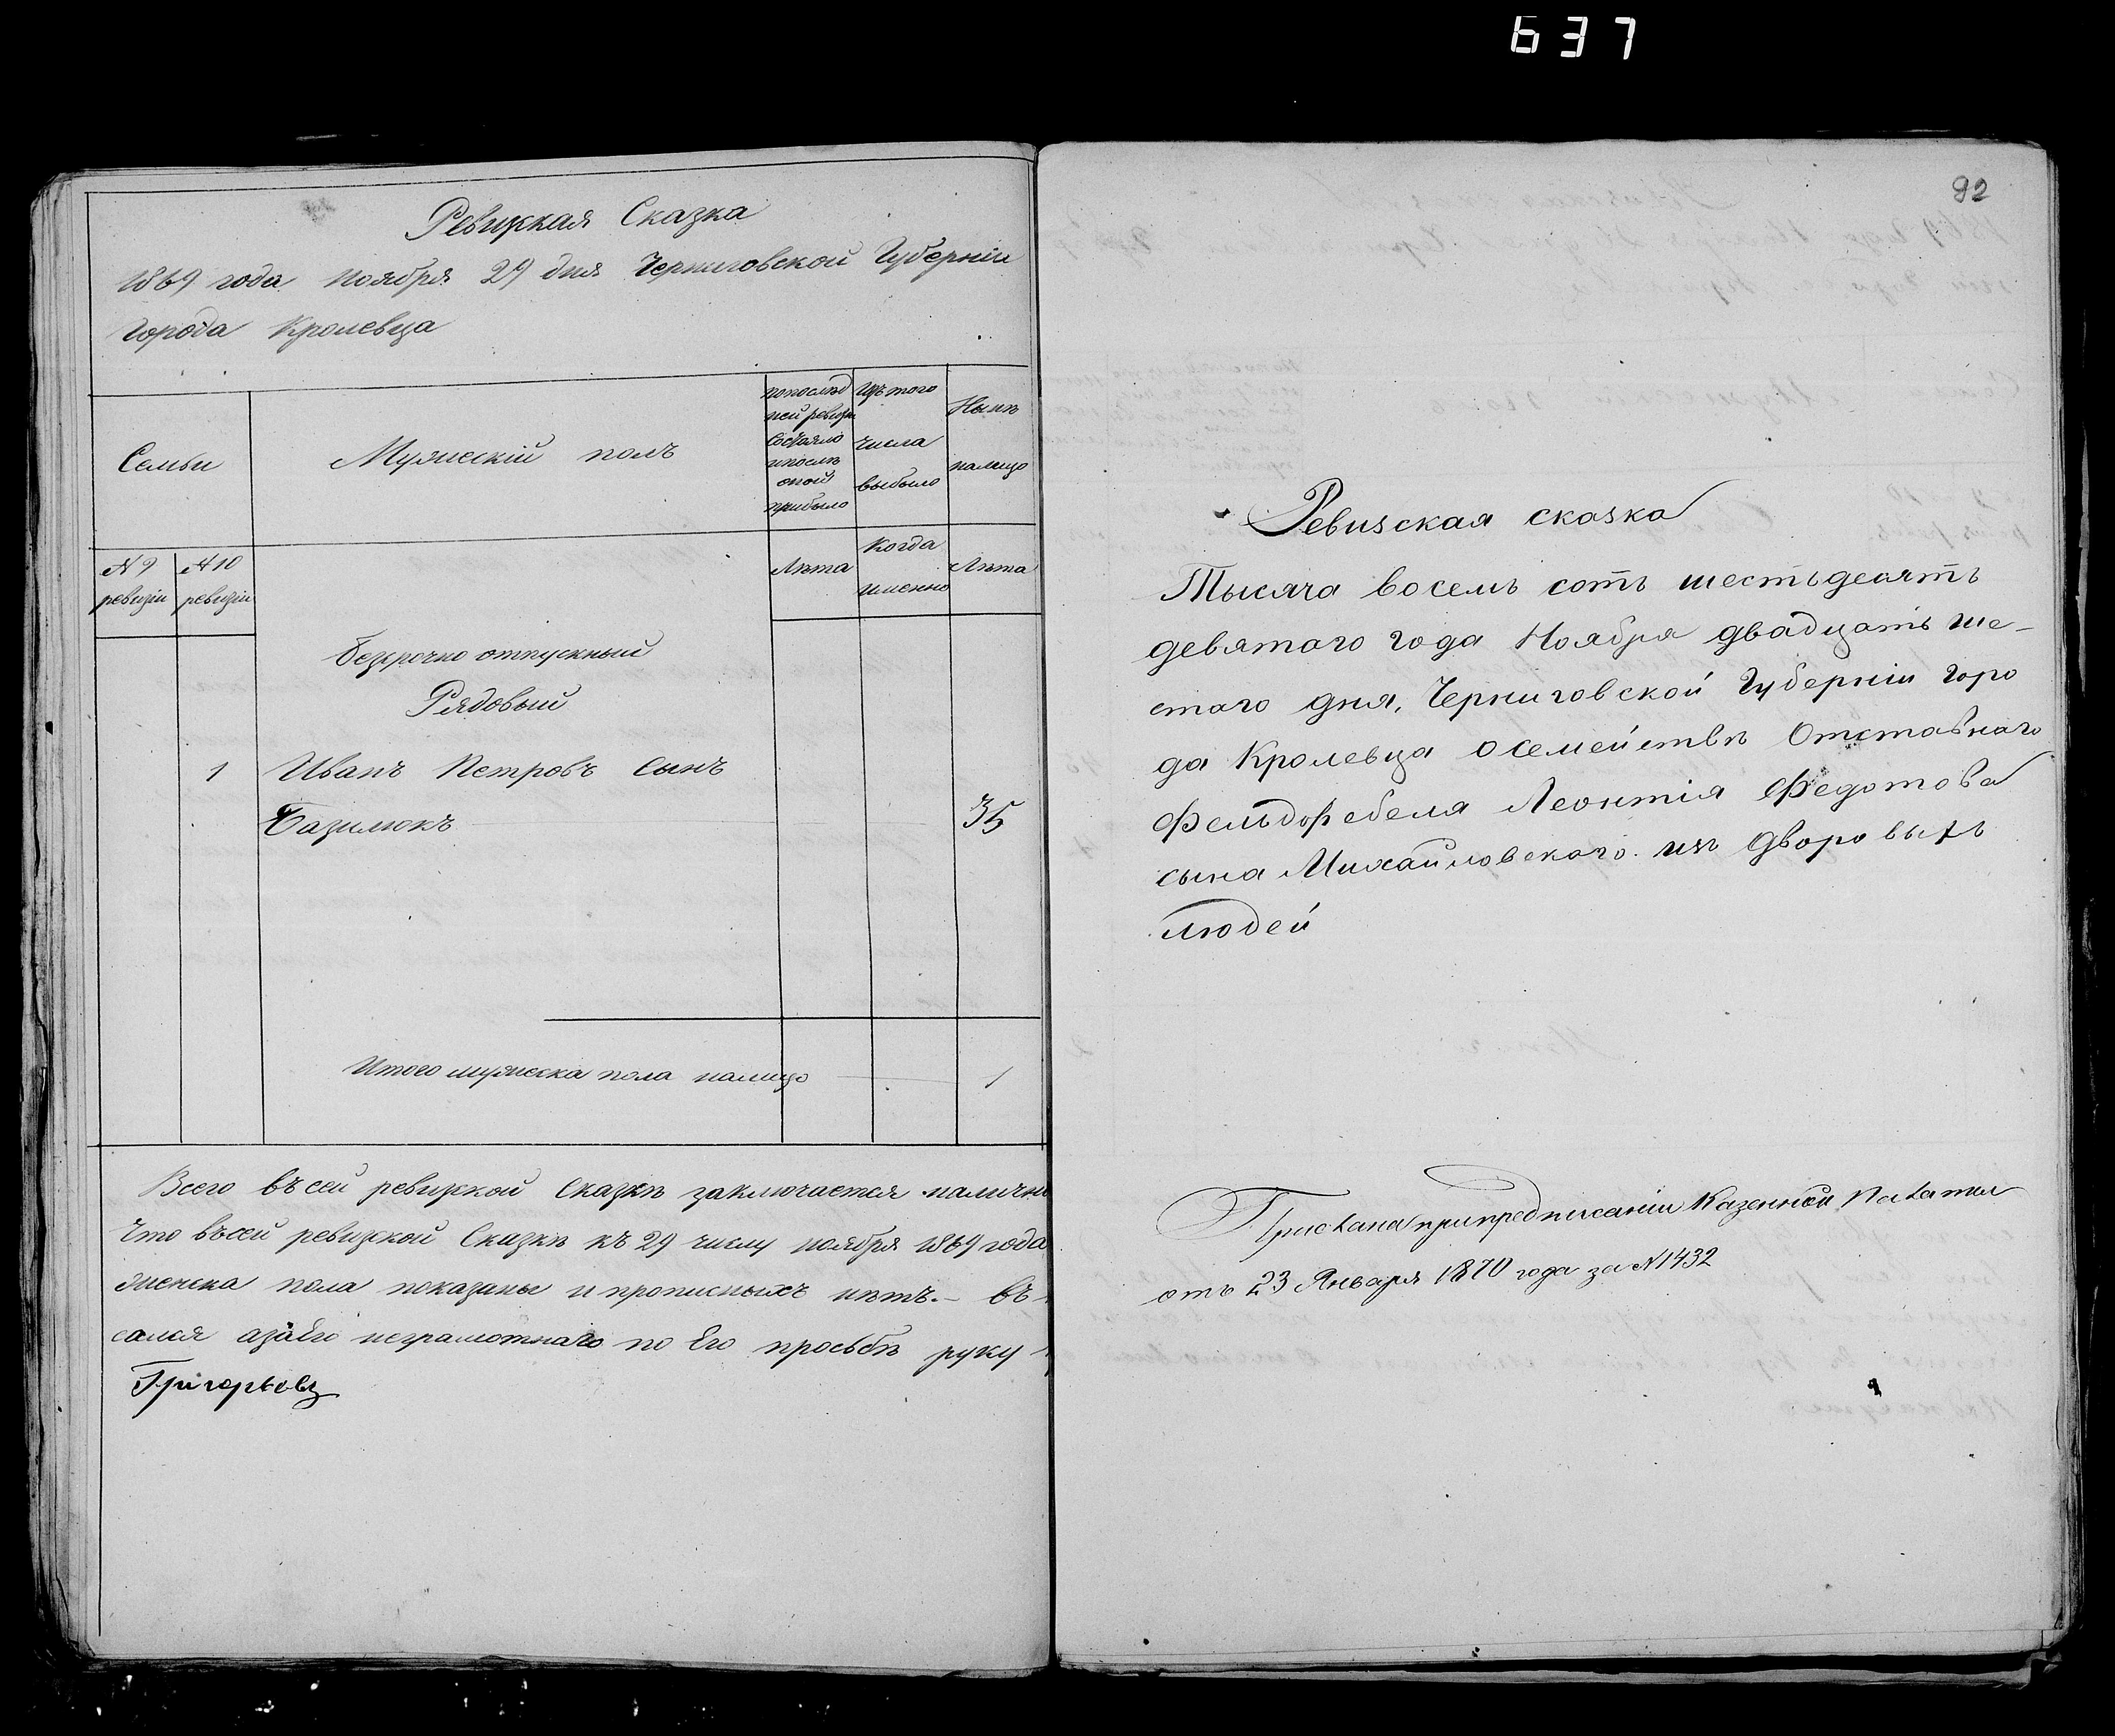 637
Ревизкая Сказка
1869 года Ноября 29 дня Черниговской Губерніи
Города Кролевца
Семьи
Мужескій полъ
попослѣд
ней ревизіи
состояло
ипослѣ
оной
прибыло
Изъ того
числа
выбыло
Нынѣ
налицо
№ 9
ревизіи
№ 10
ревизіи
Лѣта
Когда
именно
Лѣта
безсрочно отпускный
Рядовый
1 Иванъ Петровъ сынъ
Базилюкъ 35
Итого мужеска пола налицо 1
Всего въ сей ревизкой Сказкѣ заключается налично
Что въсей ревизкой Сказкѣ къ 29 числу ноября 1869 года
женска пола показаны и прописныхъ нѣтъ. - въ
сался азаего неграмотнаго по Его просьбѣ руку
Григорьевъ
92
Ревизская сказка
Тысяча восемь сотъ шестьдесятъ
девятаго года Ноября двадцать ше-
стаго дня, Черниговской Губерніи Горо
да Кролевца осемействѣ Отставнаго
Фельдфебеля Леонтія Федотова
сына Михайловскаго изъ Дворовыхъ
людей
Прислана припредписаніи Казенной Палаты
отъ 23 Января 1870 года за №1432